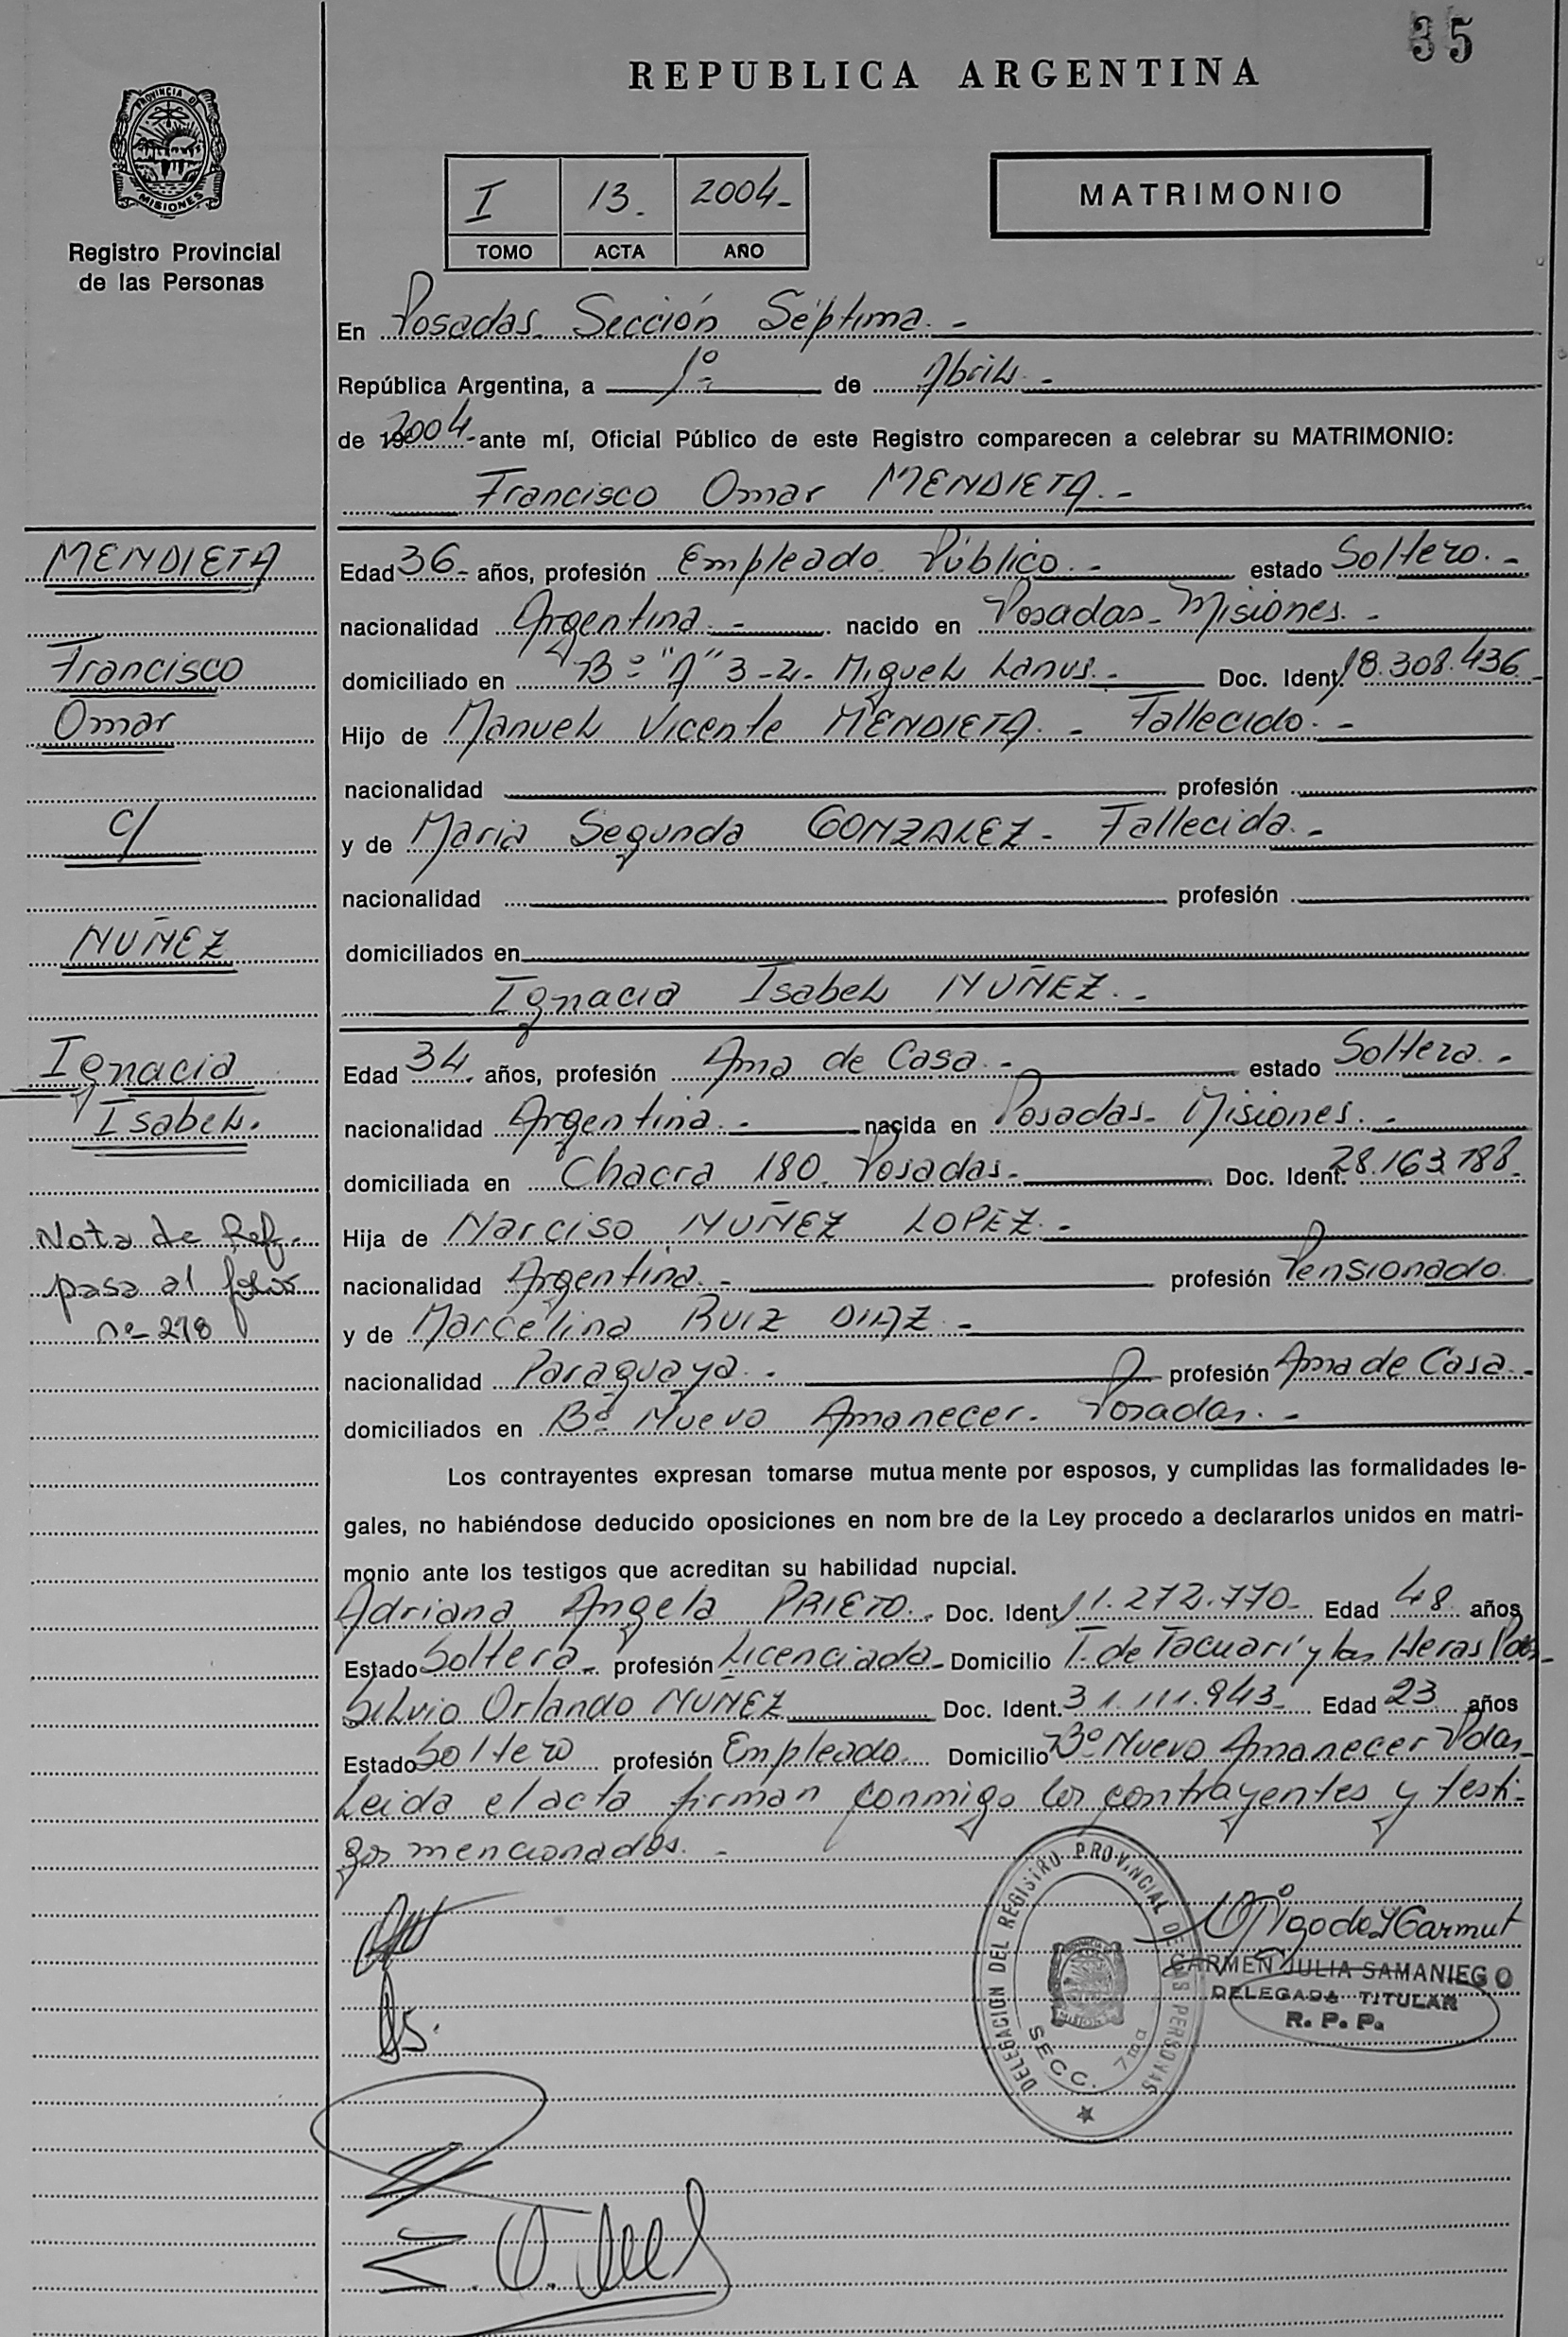 35
REPUBLICA ARGENTINA
PROVINCIA D
MISIONES
Registro Provincial
de las Personas
I 13. 2004-
TOMO ACTA AÑO
MATRIMONIO
En Posadas. Sección Séptima. -
República Argentina, a 1º- de Abril. -
de 192004.- ante mí, Oficial Público de este Registro comparecen a celebrar su MATRIMONIO:
Francisco Omar MENDIETA. -
MENDIETA
Francisco
Omar
c/
NUÑEZ
Ignacia
Isabel.
Nota de Ref.
pasa al folio
nº 218
Edad 36- años, profesión Empleado Público. - estado Soltero. -
nacionalidad Argentina. - nacido en Posadas- Misiones. -
domiciliado en Bº "A" 3-2. Miguel Lanus. - Doc. Ident. 18.308.436-
Hijo de Manuel Vicente MENDIETA. - Fallecido. -
nacionalidad profesión
y de Maria Segunda GONZALEZ - Fallecida. -
nacionalidad profesión
domiciliados en
Ignacia Isabel NUÑEZ. -
Edad 34 años, profesión Ama de Casa. - estado Soltera. -
nacionalidad Argentina. - nacida en Posadas- Misiones. -
domiciliada en Chacra 180. Posadas. - Doc. Ident. 28.163.788-
Hija de Narciso NUÑEZ LOPEZ. -
nacionalidad Argentina. - profesión Pensionado.
y de Marcelina RUIZ DIAZ. -
nacionalidad Paraguaya. - profesión Ama de Casa. -
domiciliados en Bº Nuevo Amanecer. Posadas. -
Los contrayentes expresan tomarse mutua mente por esposos, y cumplidas las formalidades le-
gales, no habiéndose deducido oposiciones en nom bre de la Ley procedo a declararlos unidos en matri-
monio ante los testigos que acreditan su habilidad nupcial.
Adriana Angela PRIETO. Doc. Ident. 11.272.770- Edad 48 años
Estado Soltera- profesión Licenciada- Domicilio T. de Tacuarí y las Heras Pdas-
Silvio Orlando NUÑEZ Doc. Ident. 31.111.943- Edad 23 años
Estado Soltero profesión Empleado. Domicilio Bº Nuevo Amanecer Pdas-
Leida el acta firman conmigo los contrayentes y testi-
gos mencionados. -
DELEGACION DEL REGISTRO PROVINCIAL DE LAS PERSONAS
SECC. 7ma
CARMEN JULIA SAMANIEGO
DELEGADA TITULAR
R. P. P.